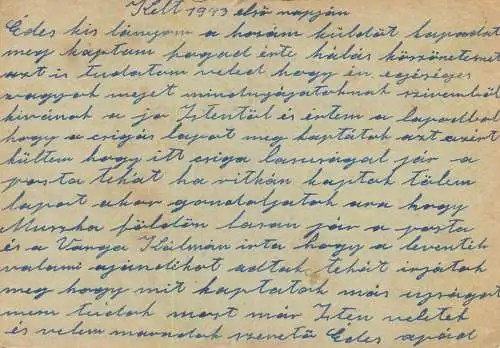 Kelt 1943 első napján
Édes kis lányom a hozám küldöt lapodat
meg kaptam fogad érte hálás köszönetemet
azt is tudatom veled hogy én egéséges
vagyok mejet mindnyájatoknak szivemből
kivánok a jo Istentöl és értem a lapodbol
hogy a csigás lapot meg kaptátok azt azért
kültem hogy itt csiga lasusagal jár a
posta tehát ha ritkán kaptok tőlem
lapot akor gondoljatok ara hogy
Muszka földön lasan jár a posta
és a Varga Kálmán irta hogy a leventék
valami ajándikot adtak tehát irjátok
meg hogy mit kaptatok más ujságot
nem tudok most már Isten veletek
és velem maradok szerető Édes apád